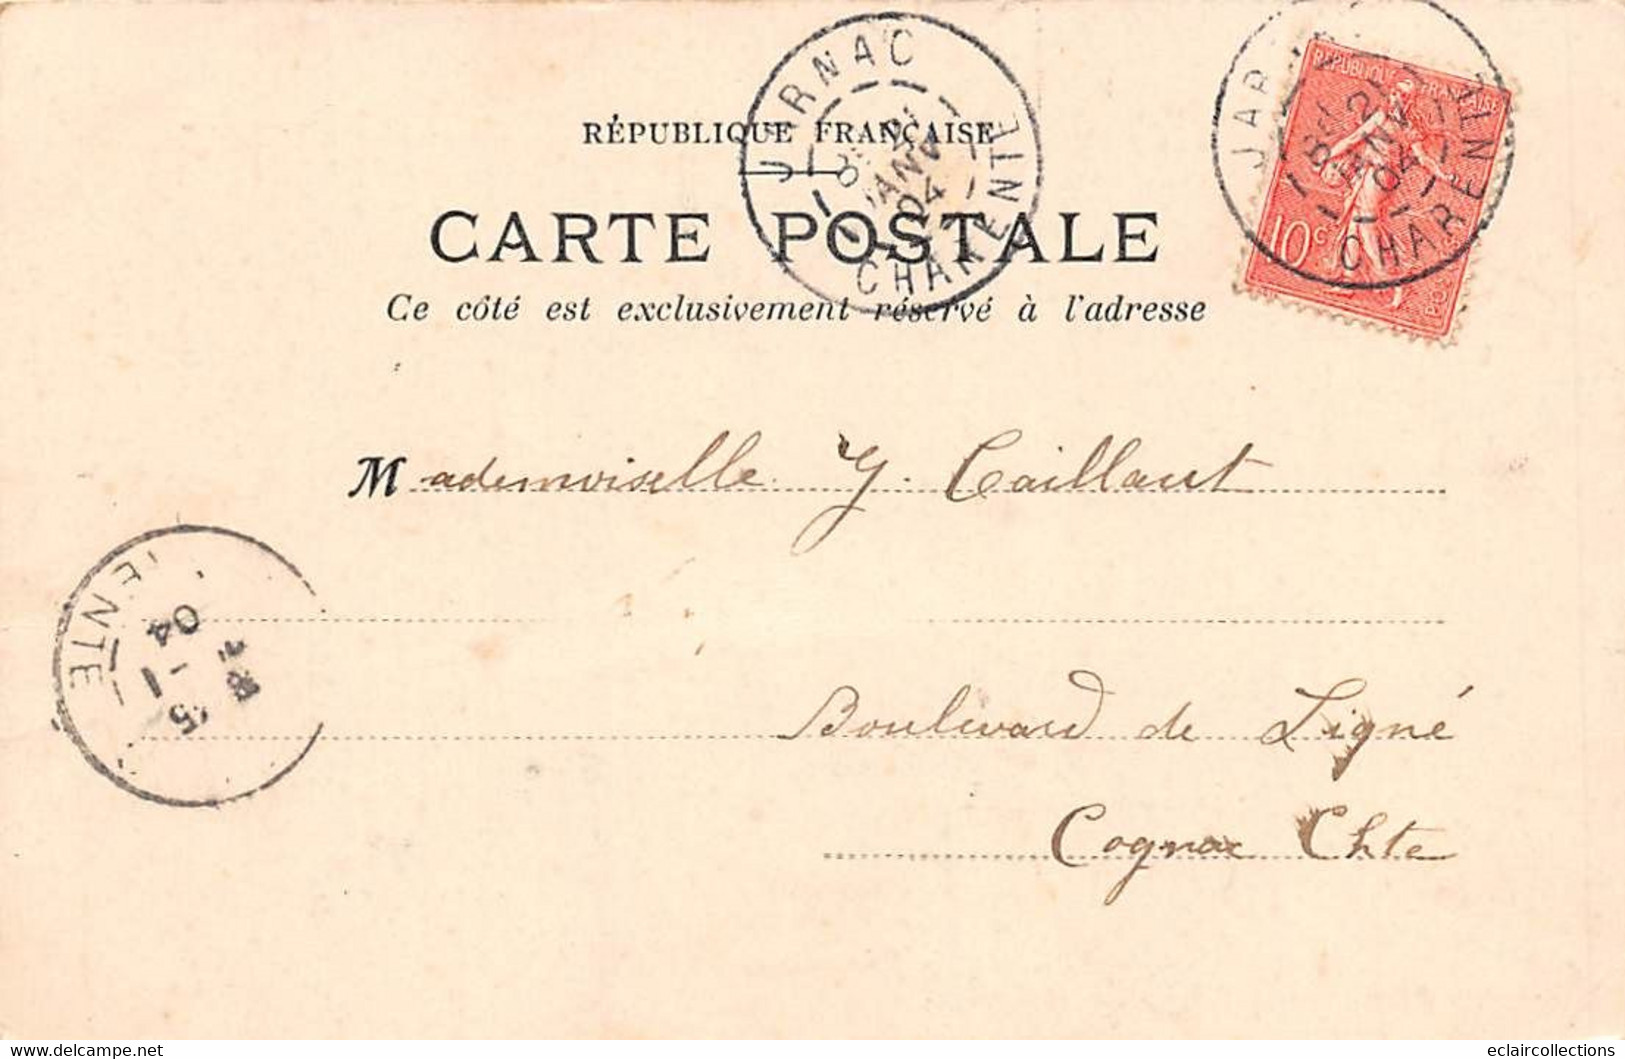 RÉPUBLIQUE FRANÇAISE
CARTE POSTALE
Ce côté est exclusivement réservé à l'adresse
JARNAC
JANV
04
CHARENTE
RÉPUBLIQUE FRANÇAISE
10c
JAR
JANV
04
CHARENTE
Mademoiselle Y. Caillaut
Boulevard de Ligné
Cognac Chte
ENTE
04
eclaircollections
https://www.delcampe.net/eclaircollections